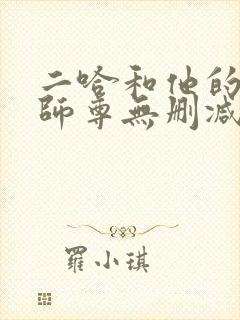 二哈和他的
師尊無删减
羅小琪